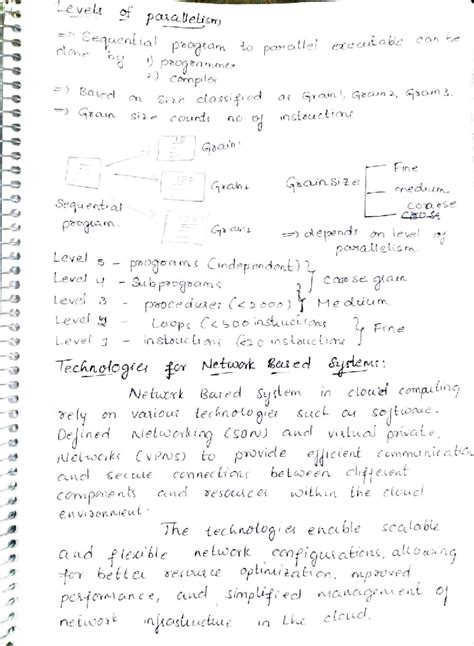 Levels of parallelism
=> Sequential program to parallel executable can be
done by 1) programmer
2) compiler
=> Based on size classified as Grain1, Grain2, Grain3.
=> Grain size counts no of instructions
10
Grain1
100
Grain2
Sequential
program.
Grain2
Grainsize
Fine
medium
coarse
=> depends on level of
parallelism.
Level 5 - programs (independent)
Level 4 - Subprograms
Coarse grain
Level 3 - procedures (<2000) } Medium
Level 2 - Loops (<500 instructions
Level 1 - instructions (<20 instructions
} Fine
Technologies for Network Based Systems:
Network Based System in cloud computing
rely on various technologies such as software-
Defined Networking (SDN) and virtual private,
Networks (VPNs) to provide efficient communication
and secure connections between different
components and resources within the cloud
environment.
The technologies enable scalable
and flexible network configurations, allowing
for better resource optimization, improved
performance, and simplified management of
network infrastructure in the cloud.